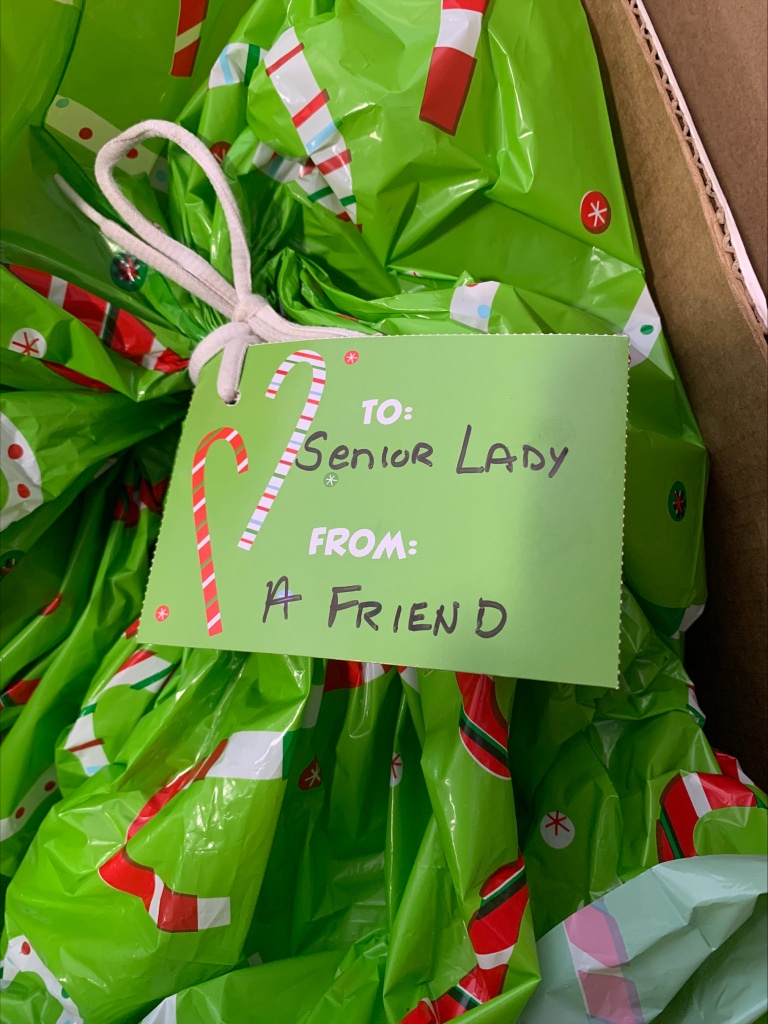 TO:
SENIOR LADY
FROM:
A FRIEND